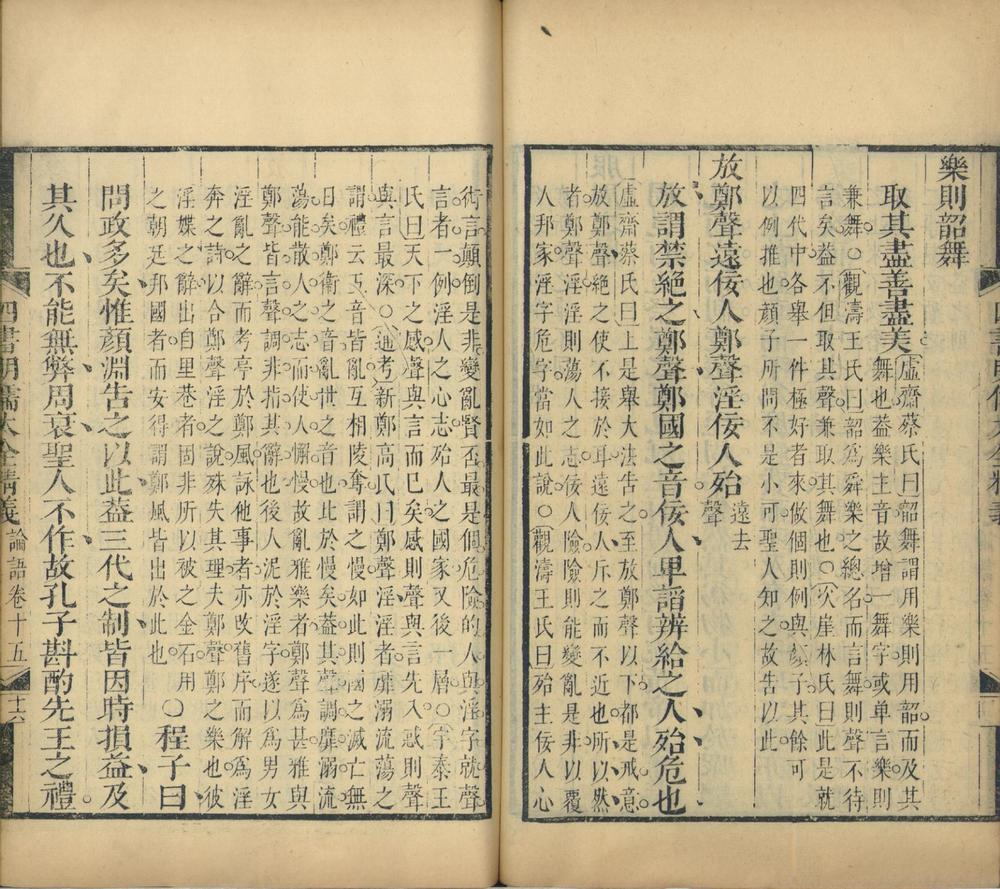 樂則韶舞
取其盡善盡美虛齋蔡氏曰韶舞謂用樂則用韶而及其
舞也葢樂主音故增一舞字或单言樂則
兼舞〇觀濤王氏曰韶爲舜樂之總名而言舞則聲不待
言矣葢不但取其聲兼取其舞也〇次崖林氏曰此是就
四代中各舉一件極好者來做個則例與顔子其餘可
以例推也顔子所問不是小可聖人知之故告以此
放鄭聲遠佞人鄭聲淫佞人殆遠去聲
放謂禁絶之鄭聲鄭國之音佞人卑諂辨給之人殆危也
虛齋蔡氏曰上是舉大法告之至放鄭聲以下都是戒意
放鄭聲絶之使不接於耳遠佞人斥之而不近也所以然
者鄭聲淫淫則蕩人之志佞人險險則能變亂是非以覆
人邦家淫字危字當如此說〇觀濤王氏曰殆主佞人心
術言顛倒是非變亂賢否最是個危險的人與淫字就聲
言者一例淫人之心志殆人之國家又後一層〇宇泰王
氏曰天下之感聲與言而巳矣感則聲與言先入惑則聲
與言最深〇通考新鄭高氏曰鄭聲淫淫者靡溺流蕩之
謂禮云五音皆亂互相陵奪謂之慢如此則國之滅亡無
日矣鄭衛之音亂世之音也比於慢矣葢其聲調靡溺流
蕩能散人之志而使人懈慢故亂雅樂者鄭聲爲甚雅與
鄭聲皆言聲調非指其辭也後人泥於淫字遂以爲男女
淫亂之辭而考亭於鄭風詠他事者亦改舊序而解爲淫
奔之詩以合鄭聲淫之說殊失其理夫鄭聲鄭之樂也彼
淫媟之辭出自里巷者固非所以被之金石用
之朝廷邦國者而安得謂鄭風皆出於此也〇程子曰
問政多矣惟顔淵告之以此葢三代之制皆因時損益及
其久也不能無弊周衰聖人不作故孔子斟酌先王之禮
四書明儒大全精義 論語卷十五 十六